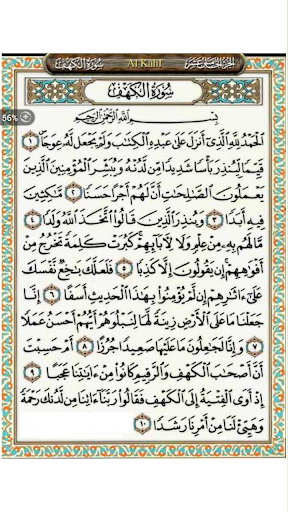 سورة الكهف
Al Kahf
الجزء الخامس عشر
سُورَةُ الكَهْفِ
56%
بِسْمِ اللَّهِ الرَّحْمَٰنِ الرَّحِيمِ
الْحَمْدُ لِلَّهِ الَّذِي أَنزَلَ عَلَىٰ عَبْدِهِ الْكِتَٰبَ وَلَمْ يَجْعَل لَّهُ عِوَجَا ۜ ١
قَيِّمًا لِّيُنذِرَ بَأْسًا شَدِيدًا مِّن لَّدُنْهُ وَيُبَشِّرَ الْمُؤْمِنِينَ الَّذِينَ
يَعْمَلُونَ الصَّٰلِحَٰتِ أَنَّ لَهُمْ أَجْرًا حَسَنًا ٢ مَّٰكِثِينَ
فِيهِ أَبَدًا ٣ وَيُنذِرَ الَّذِينَ قَالُوا اتَّخَذَ اللَّهُ وَلَدًا ٤
مَّا لَهُم بِهِ مِنْ عِلْمٍ وَلَا لِآبَائِهِمْ كَبُرَتْ كَلِمَةً تَخْرُجُ مِنْ
أَفْوَٰهِهِمْ إِن يَقُولُونَ إِلَّا كَذِبًا ٥ فَلَعَلَّكَ بَٰخِعٌ نَّفْسَكَ
عَلَىٰ ءَاثَٰرِهِمْ إِن لَّمْ يُؤْمِنُوا بِهَٰذَا الْحَدِيثِ أَسَفًا ٦ إِنَّا
جَعَلْنَا مَا عَلَى الْأَرْضِ زِينَةً لَّهَا لِنَبْلُوَهُمْ أَيُّهُمْ أَحْسَنُ عَمَلًا
٧ وَإِنَّا لَجَٰعِلُونَ مَا عَلَيْهَا صَعِيدًا جُرُزًا ٨ أَمْ حَسِبْتَ
أَنَّ أَصْحَٰبَ الْكَهْفِ وَالرَّقِيمِ كَانُوا مِنْ ءَايَٰتِنَا عَجَبًا ٩
إِذْ أَوَى الْفِتْيَةُ إِلَى الْكَهْفِ فَقَالُوا رَبَّنَا ءَاتِنَا مِن لَّدُنكَ رَحْمَةً
وَهَيِّئْ لَنَا مِنْ أَمْرِنَا رَشَدًا ١٠